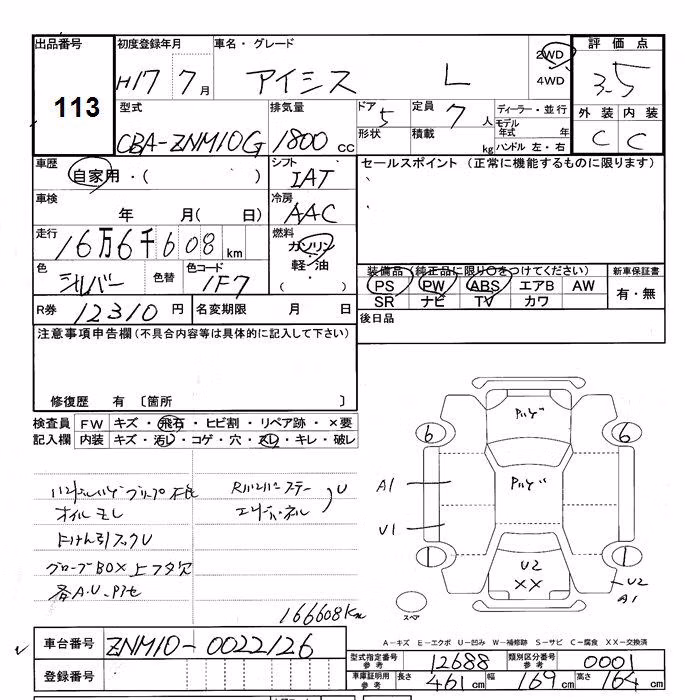 出品番号 初度登録年月 車名・グレード 2WD 評価点
113 H17 7月 アイシス L 4WD 3.5
型式 排気量 ドア 5 定員 7人 ディーラー・並行 外装 内装
CBA-ZNM10G 1800cc 形状 積載 kg モデル年式 年 C C
ハンドル 左・右
車歴 シフト セールスポイント(正常に機能するものに限ります)
自家用・( ) IAT
車検 冷房
年 月( 日) AAC
走行 燃料
16万6千608km ガソリン
軽・油
・
( )
色 シルバー 色替 色コード 1F7
装備品(純正品に限り○をつけてください) 新車保証書
PS PW ABS エアB AW 有・無
SR ナビ TV カワ
R券 12310円 名変期限 月 日
後日品
注意事項申告欄(不具合内容等は具体的に記入して下さい)
修復歴 有 〔箇所 〕
検査員 FW キズ・飛石・ヒビ割・リペア跡・×要
記入欄 内装 キズ・汚レ・コゲ・穴・スレ・キレ・破レ
オイルモレ
けん引フックU
グローブBOX上フタ欠
各A.U
U
166608Km
6 6
A1
U1
1 1
U2
XX
U2
A1
スペア
A-キズ E-エクボ U-凹み W-補修跡 S-サビ C-腐食 XX-交換済
車台番号 ZNM10-0022126
登録番号
型式指定番号 参考 12688 類別区分番号 参考 0001
車庫証明用 参考 長さ 461cm 幅 169cm 高さ 164cm